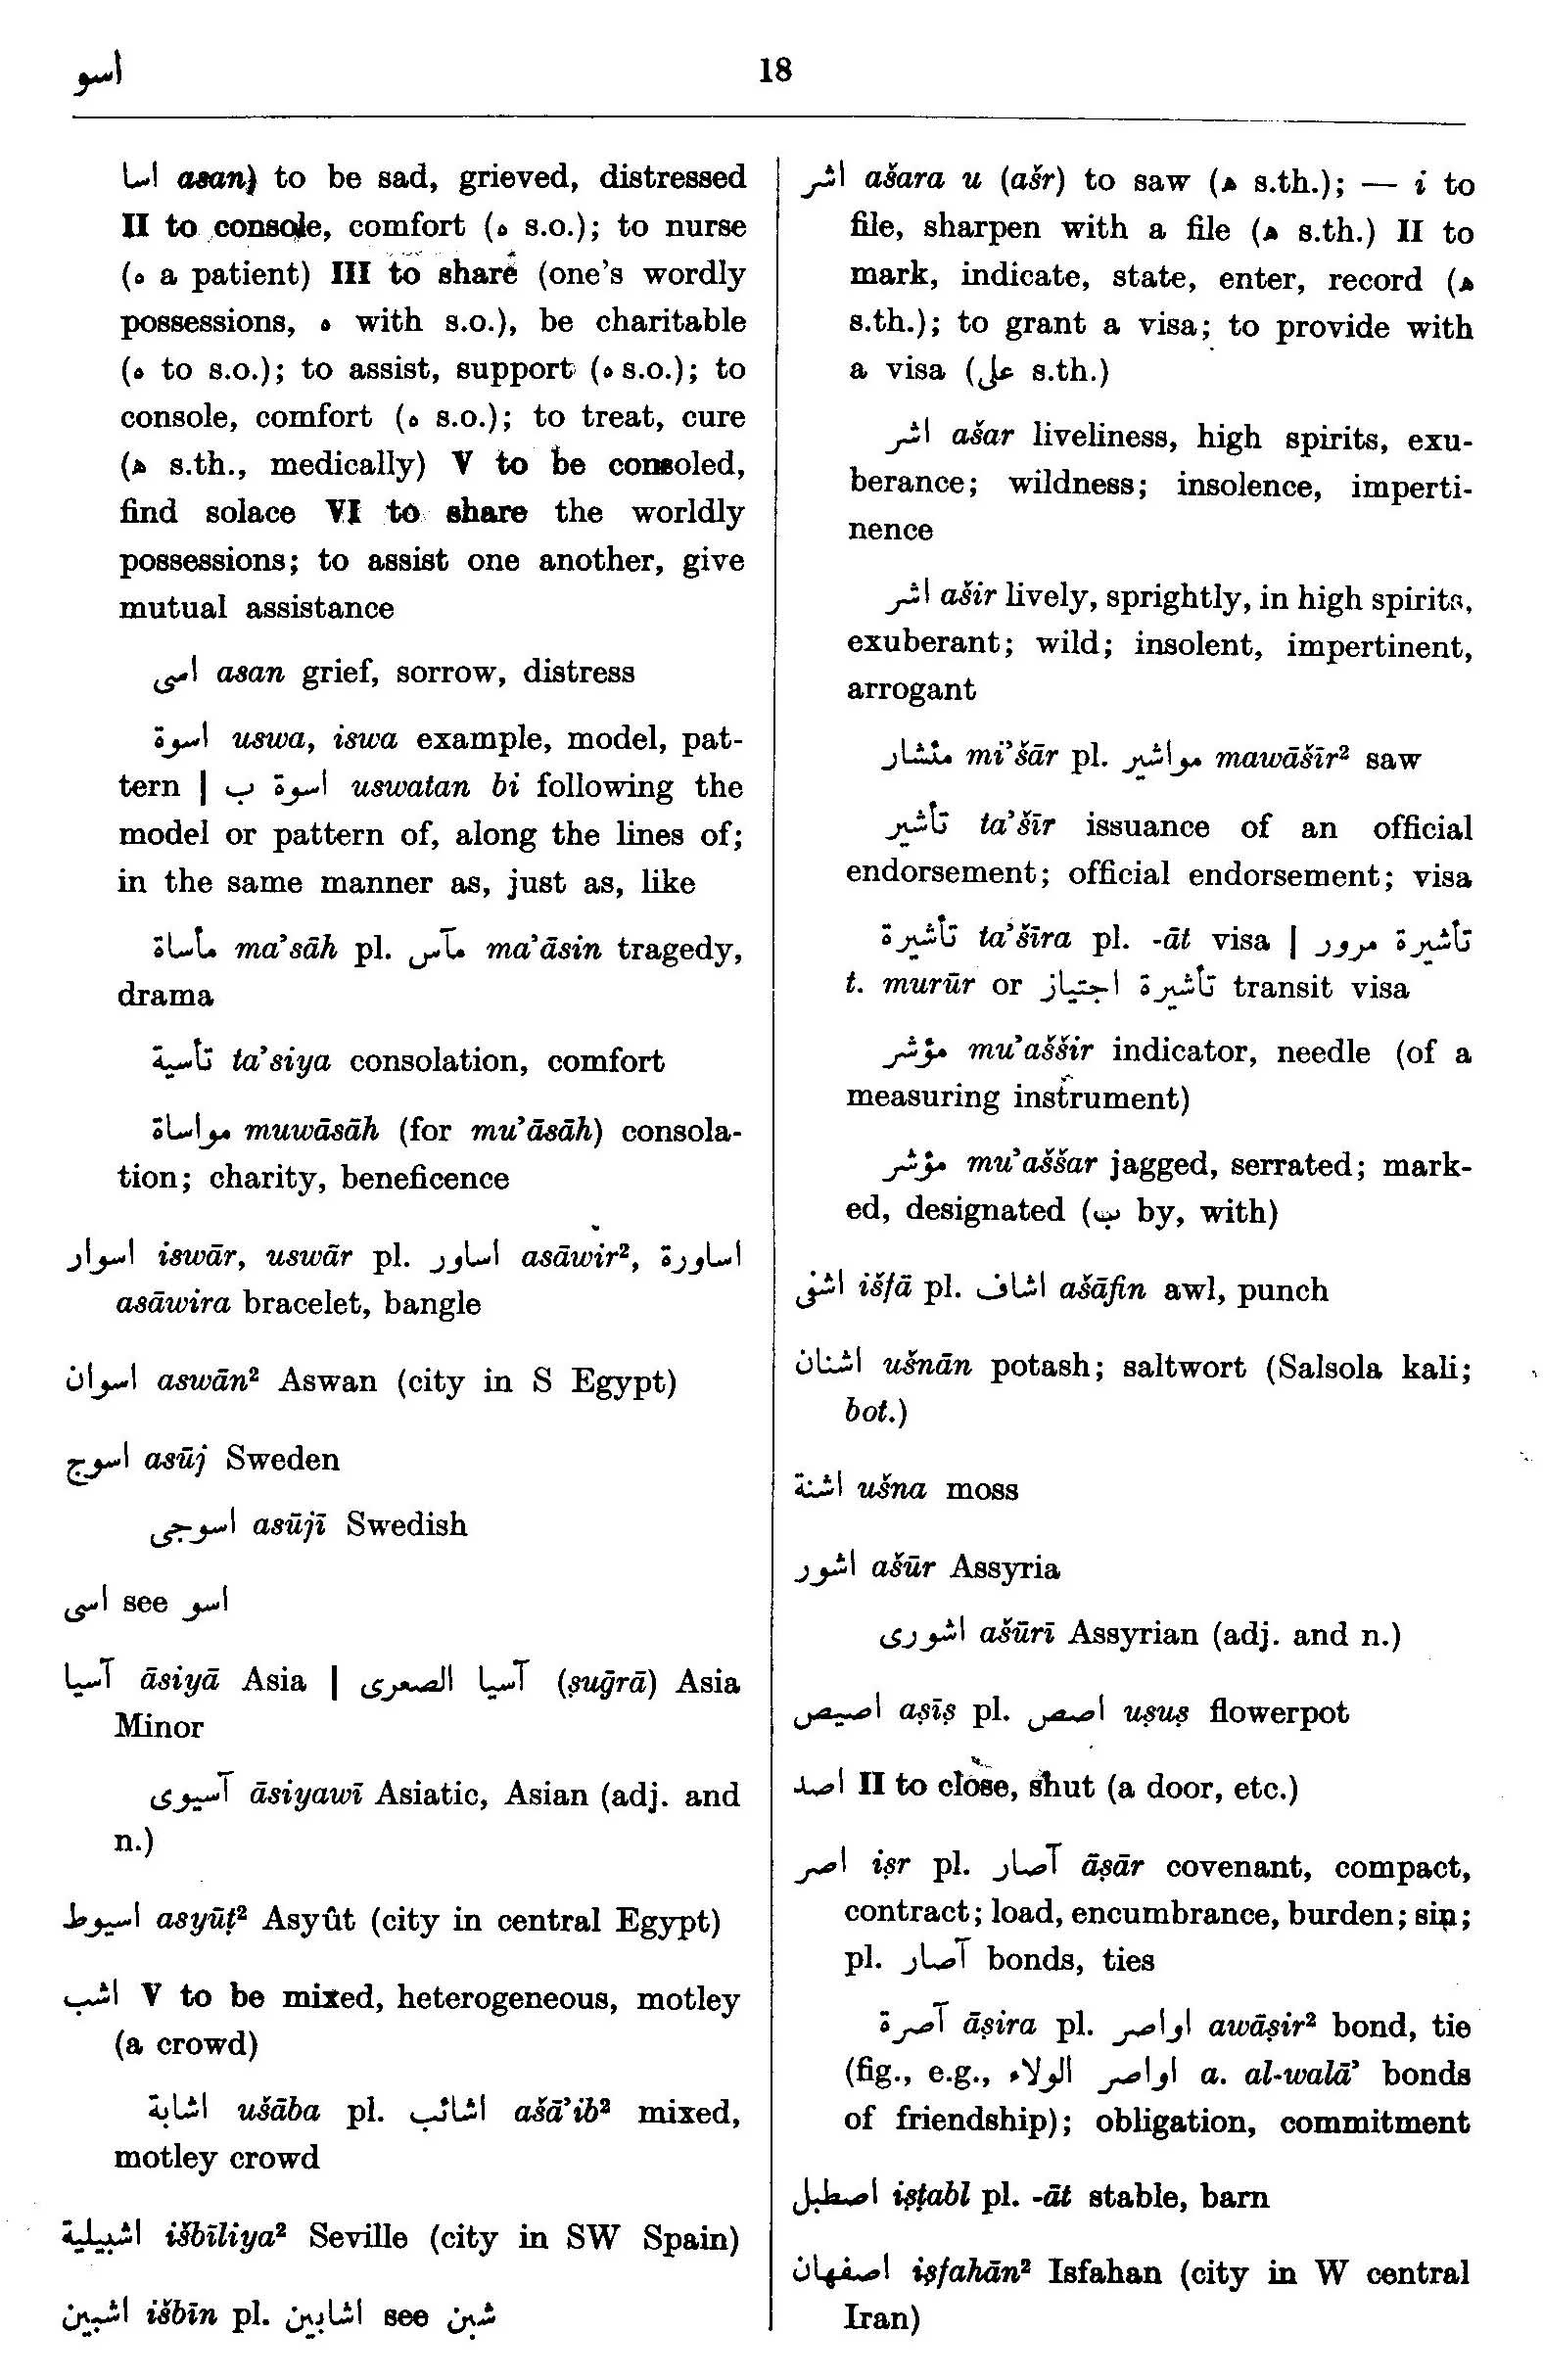 اسو
18
اسا asan) to be sad, grieved, distressed
II to console, comfort (ه s.o.); to nurse
(ه a patient) III to share (one's wordly
possessions, ه with s.o.), be charitable
(ه to s.o.); to assist, support (ه s.o.); to
console, comfort (ه s.o.); to treat, cure
(ھ s.th., medically) V to be consoled,
find solace VI to share the worldly
possessions; to assist one another, give
mutual assistance
اسى asan grief, sorrow, distress
اسوة uswa, iswa example, model, pat-
tern | اسوة ب uswatan bi following the
model or pattern of, along the lines of;
in the same manner as, just as, like
مأساة ma'sāh pl. مآس ma'āsin tragedy,
drama
تأسية ta'siya consolation, comfort
مواساة muwāsāh (for mu'āsāh) consola-
tion; charity, beneficence
اسوار iswār, uswār pl. اساور asāwir², اساورة
asāwira bracelet, bangle
اسوان aswān² Aswan (city in S Egypt)
اسوج asūj Sweden
اسوجى asūjī Swedish
اسى see اسو
آسيا āsiyā Asia | آسيا الصعرى (ṣuḡrā) Asia
Minor
آسيوى āsiyawī Asiatic, Asian (adj. and
n.)
اسيوط asyūṭ² Asyût (city in central Egypt)
اشب V to be mixed, heterogeneous, motley
(a crowd)
اشابة ušāba pl. اشائب ašā'ib² mixed,
motley crowd
اشبيلية išbīliya² Seville (city in SW Spain)
اشبين išbīn pl. اشابين see شبن
اشر ašara u (ašr) to saw (ھ s.th.); — i to
file, sharpen with a file (ھ s.th.) II to
mark, indicate, state, enter, record (ھ
s.th.); to grant a visa; to provide with
a visa (على s.th.)
اشر ašar liveliness, high spirits, exu-
berance; wildness; insolence, imperti-
nence
اشر ašir lively, sprightly, in high spirits,
exuberant; wild; insolent, impertinent,
arrogant
مئشار mi'šār pl. مواشير mawāšīr² saw
تأشير ta'šīr issuance of an official
endorsement; official endorsement; visa
تأشيرة ta'šīra pl. -āt visa | تأشيرة مرور
t. murūr or تأشيرة اجتياز transit visa
مؤشر mu'aššir indicator, needle (of a
measuring instrument)
مؤشر mu'aššar jagged, serrated; mark-
ed, designated (ب by, with)
اشفى išfā pl. اشاف ašāfin awl, punch
اشنان ušnān potash; saltwort (Salsola kali;
bot.)
اشنة ušna moss
اشور ašūr Assyria
اشورى ašūrī Assyrian (adj. and n.)
اصيص aṣīṣ pl. اصص uṣuṣ flowerpot
اصد II to close, shut (a door, etc.)
اصر iṣr pl. آصار āṣār covenant, compact,
contract; load, encumbrance, burden; sin;
pl. آصار bonds, ties
آصرة āṣira pl. اواصر awāṣir² bond, tie
(fig., e.g., اواصر الولاء a. al-walā' bonds
of friendship); obligation, commitment
اصطبل iṣṭabl pl. -āt stable, barn
اصفهان iṣfahān² Isfahan (city in W central
Iran)